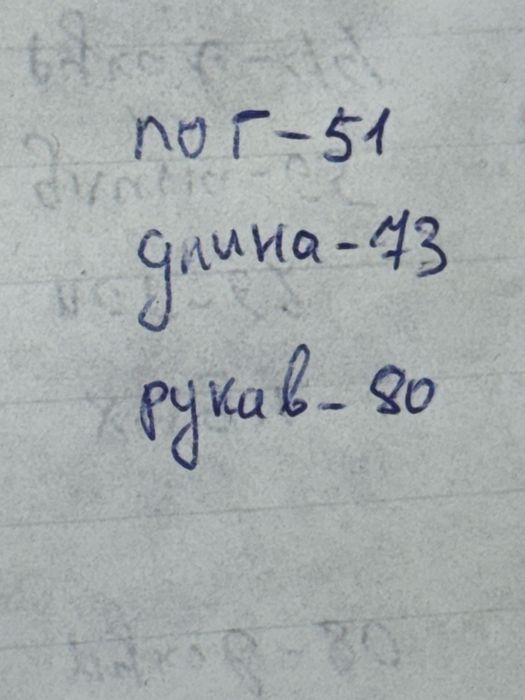 пог-51
длина-73
рукав-80